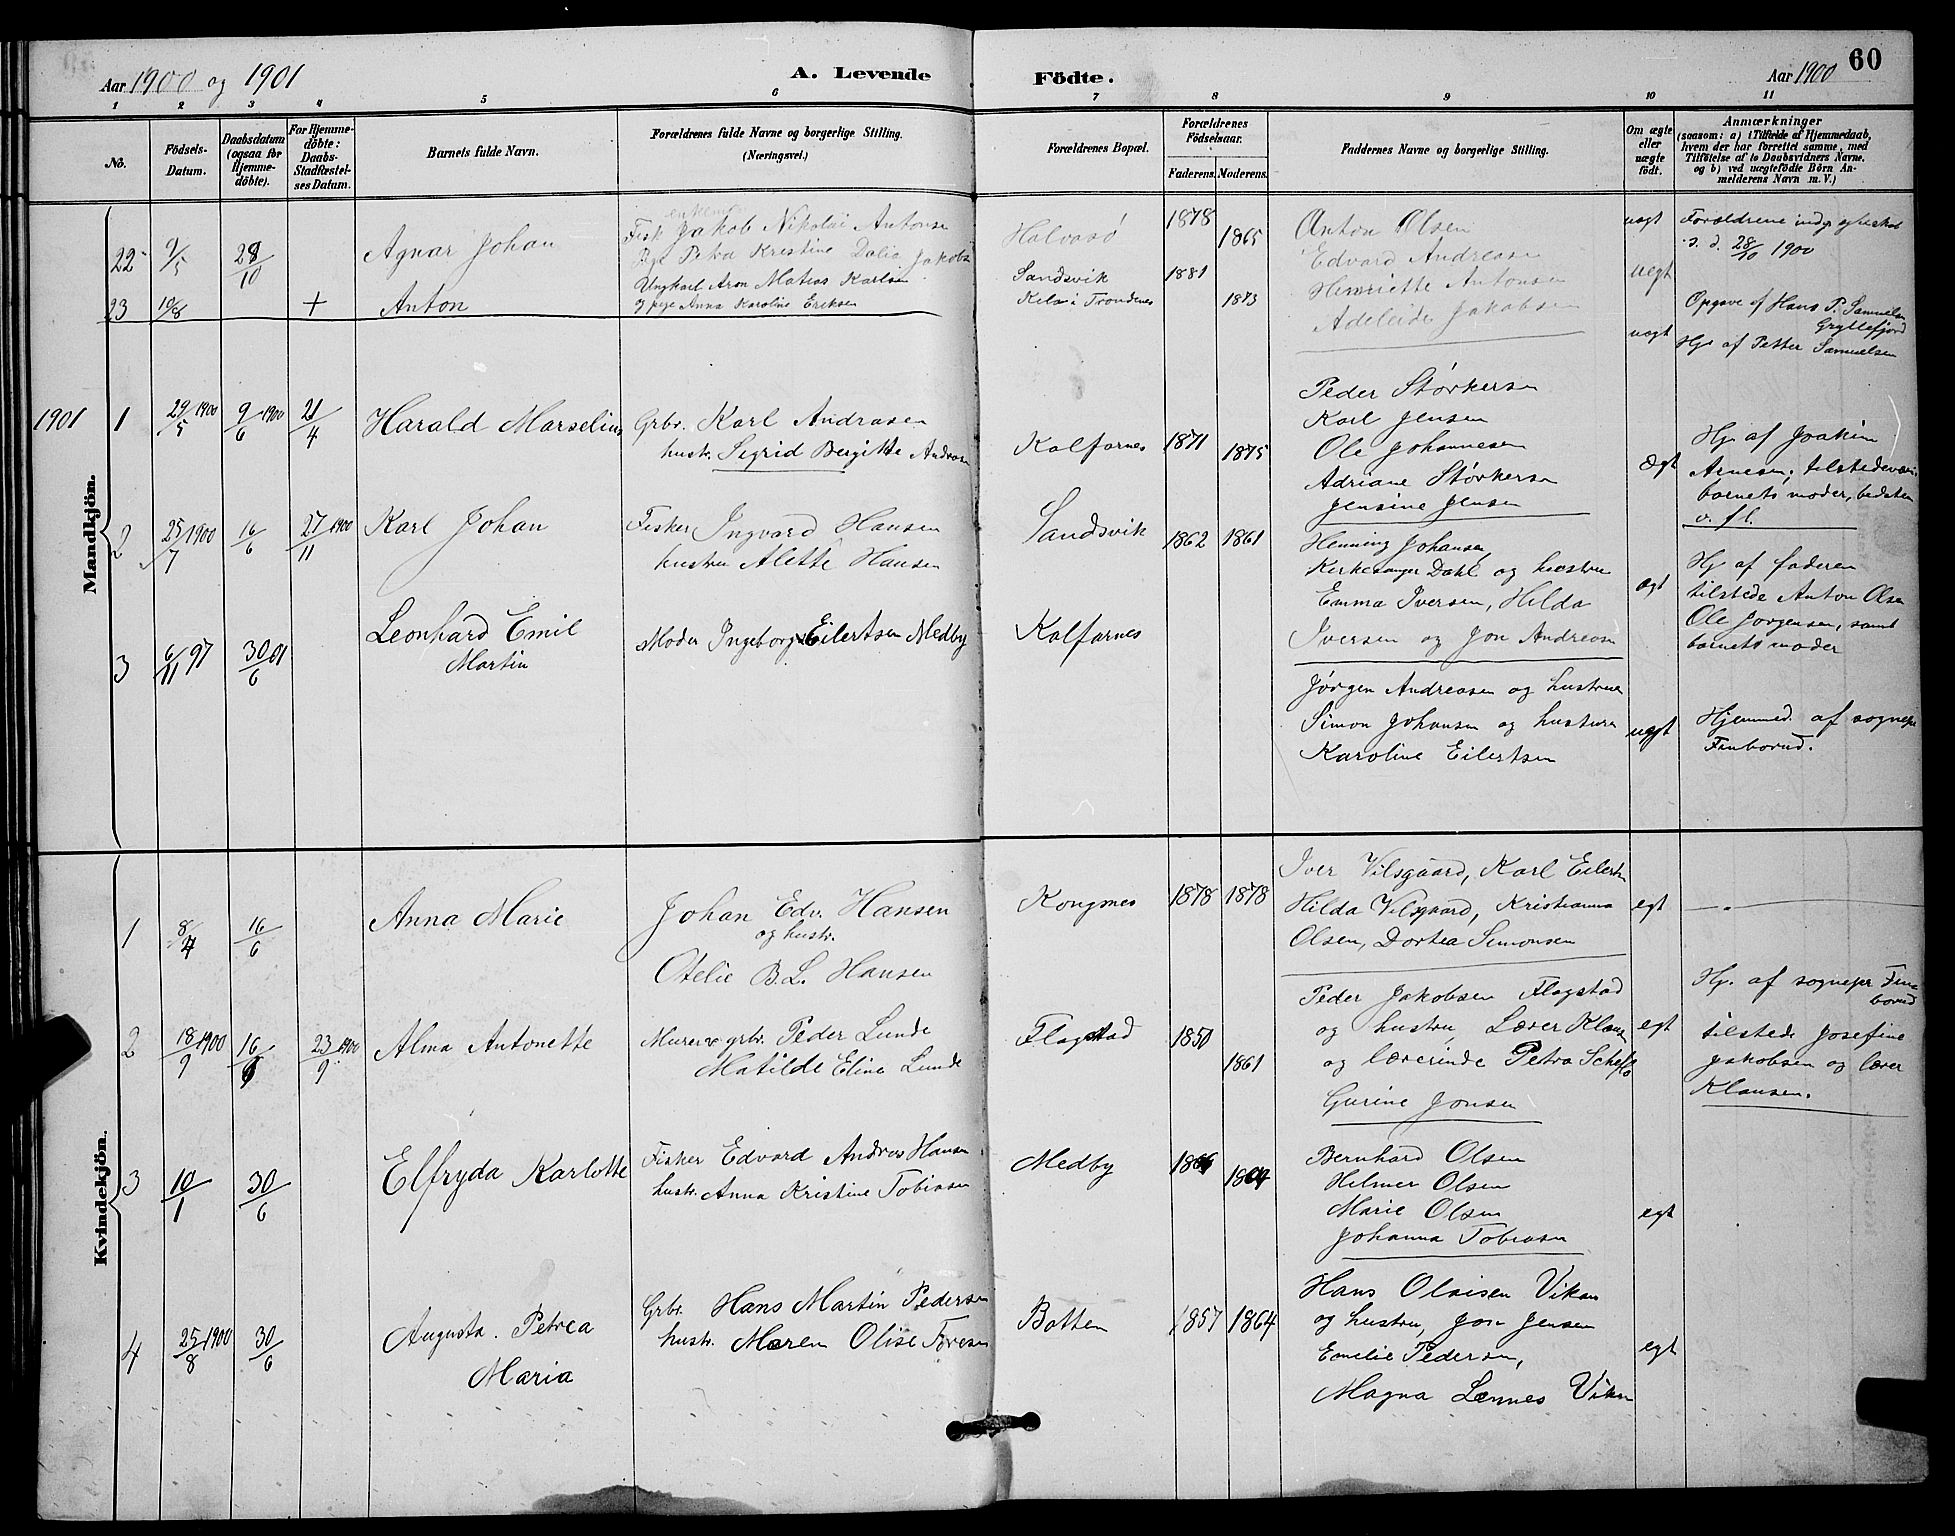 Aar 1900 og 1901
A. Levende Födte.
Aar 1900
60
1 2 3 4 5 6 7 8 9 10 11
No.
Födsels-
Datum.
Daabsdatum
(ogsaa for
Hjemme-
döbte).
For Hjemme-
döbte:
Daabs-
Stadfæstel-
ses Datum.
Barnets fulde Navn.
Forældrenes fulde Navne og borgerlige Stilling.
(Næringsvei.)
Forældrenes Bopæl.
Forældrenes
Födselsaar.
Faderens. Moderens.
Faddernes Navne og borgerlige Stilling.
Om ægte
eller
uægte
födt.
Anmærkninger
(saasom: a) i Tilfælde af Hjemmedaab,
hvem der har forrettet samme, med
Tilföielse af to Daabsvidners Navne,
og b) ved uægtefödte Börn An-
melderens Navn m. V.)
Mandkjön.
22 9/5 28/10
Agnar Johan
Fisk Jakob Nikolai Antonsen
Petra Kristine Dalia Jakobs
Halvasö
1878 1865
Anton Olsen
Edvard Andreasen
Henriette Antonsen
Adeleide Jakobsen
uegt
Forældrene indg
s. d. 28/10 1900
23 10/8 +
Anton
Ungkarl Aron Matias Karlsen
og pige Anna Karoline Eriksen
Sandsvik
Trondenes
1881 1873
uegt
uegt
Opgave af Hans P. Samuelsen
Gryllefjord
Hj. af Petter Samuelsen
1901
1 29/5 1900 9/6 1900 21/4
Harald Marselius
Grbr. Karl Andrasen
hustr. Sigrid Bergitte Andrasen
Kalfarnes
1871 1875
Peder Størkersen
Karl Jensen
Ole Johannesen
Adriane Størkersen
Jensine Jensen
Ægt
Hj. af Joakim
Arnesen, tilstedevær.
barnets moder, bedsten
o. fl.
2 25/7 1900 16/6 27/11 1900
Karl Johan
Fisker Ingvard Hansen
hustru Alette Hansen
Sandsvik
1862 1861
Henning Johansen,
Kirkesanger Dahl og hustru
Emma Iversen, Hilda
Iversen og Jon Andreasen
ægt
Hj. af faderen
tilstede Anton Olsen
Ole Jørgensen, samt
barnets moder
3 6/11 97 30/6 01
Leonhard Emil
Martin
Moder Ingeborg Eilertsen Medby
Kalfarnes
Jørgen Andreasen og hustrue
Simon Johansen og hustrue
Karoline Eilertsen
uegt
Hjemmed. af sognepr
Finborud.
Kvindekjön.
1 8/4 16/6
Anna Marie
Johan Edv. Hansen
og hustr.
Otelie B. L. Hansen
Kongsnes
1878 1878
Iver Vilsgaard, Karl Eilertsen
Hilda Vilsgaard, Kristianna
Olsen, Dortea Simonsen
egt
2 18/9 1900 16/6 23/9 1900
Alma Antonette
Murer og grbr. Peder Lunde
Matilde Eline Lunde
Flagstad
1850 1861
Peder Jakobsen Flagstad
og hustru, Lærer Klausen
og lærerinde Petra
Gurine Jonsen
egt
Hj. af sognepr Fin-
borud
tilstede Josefine
Jakobsen og lærer
Klausen.
3 10/1 30/6
Elfryda Karlotte
Fisker Edvard Andreas Hansen
hustr. Anna Kristine Tobiasen
Medby
Bernhard Olsen
Helmer Olsen
Marie Olsen
Johanna Tobiasen
ægt
4 25/8 1900 30/6
Augusta. Petrea
Maria
Grbr. Hans Martin Pedersen
hustr. Maren Olise
Botten
1857 1864
Hans Olaisen Vikan
og hustru, Jon Jensen
Emelie Pedersen,
Magna Lennes Vikan
egt